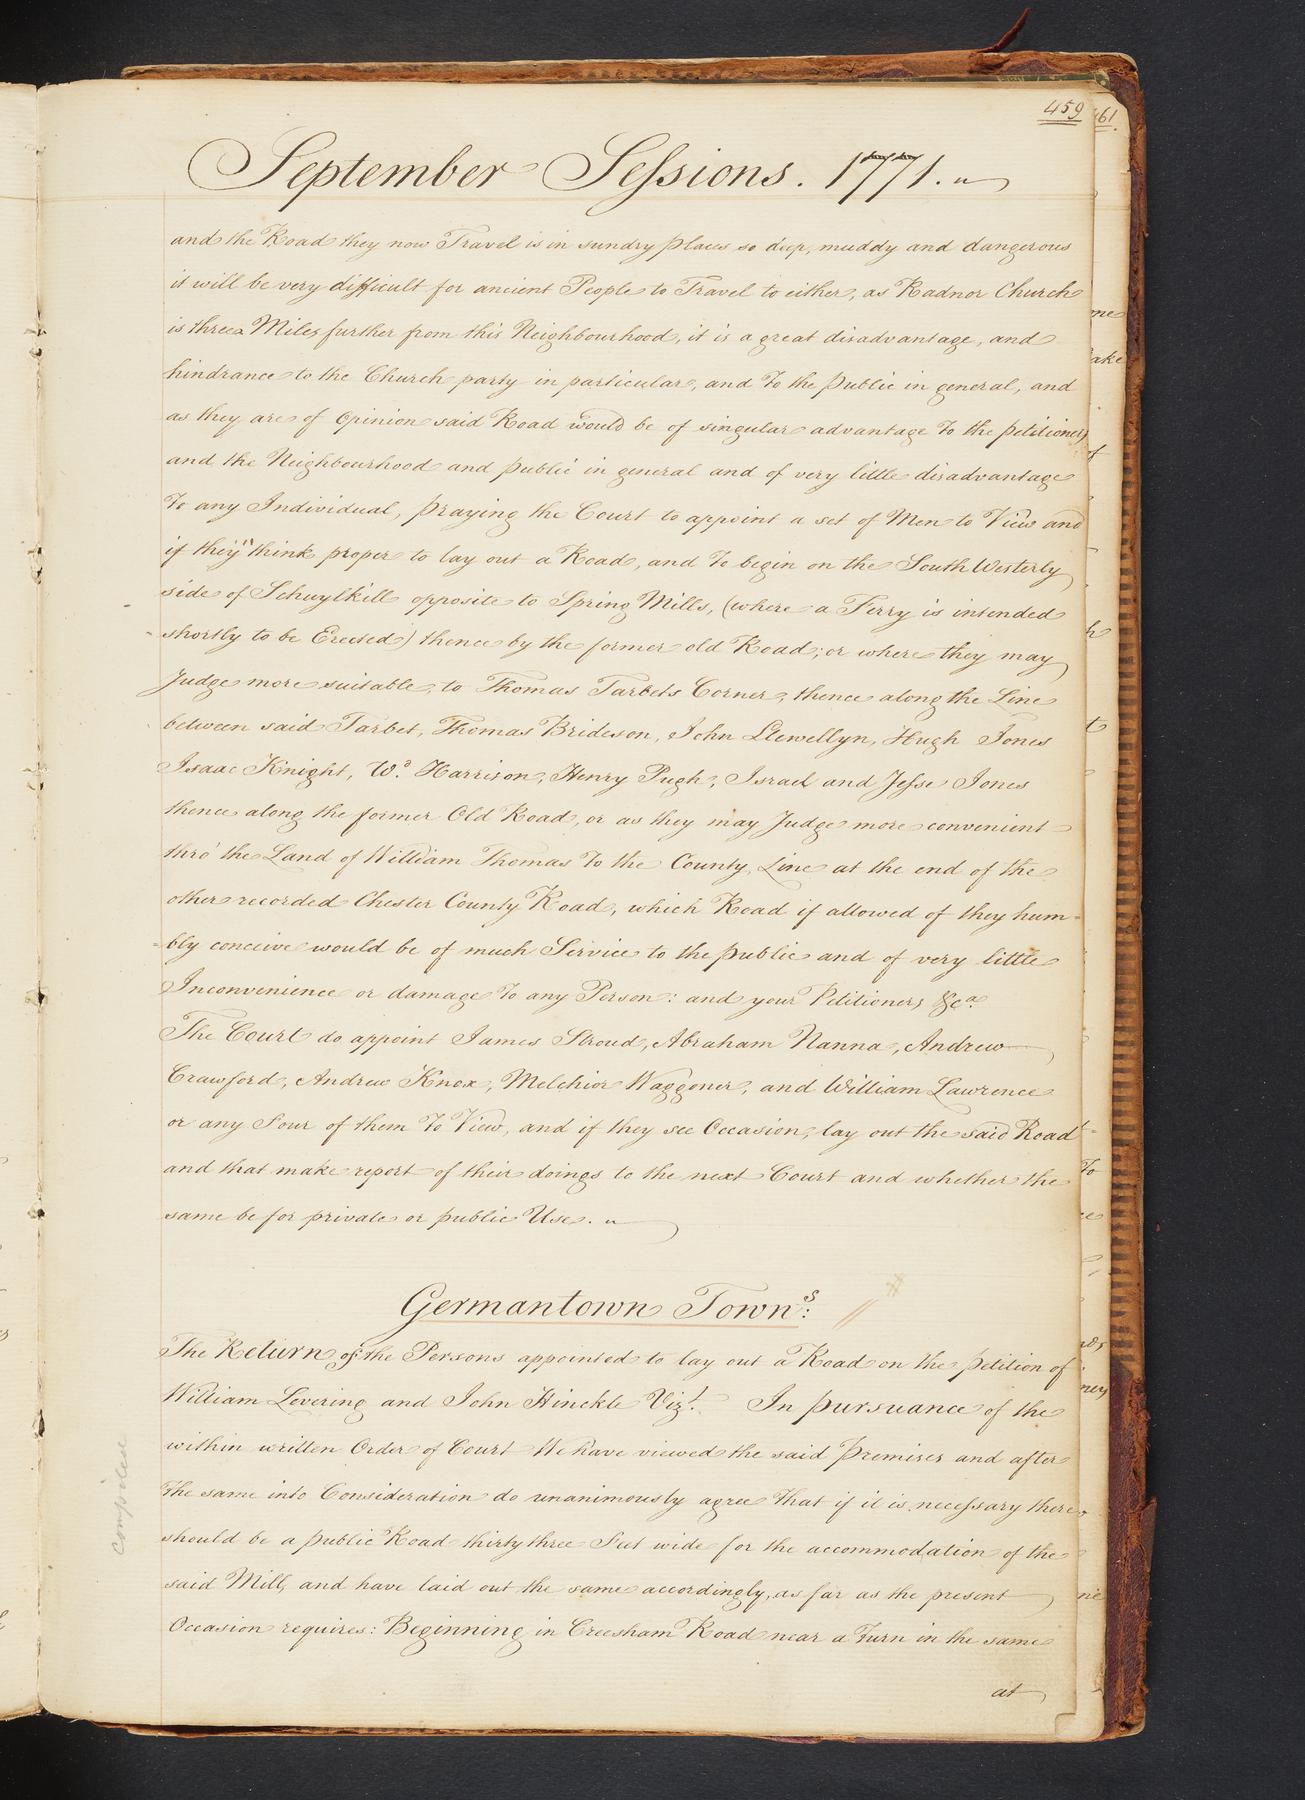 459
61.
September Sessions. 1771.
and the Road they now Travel is in sundry places so deep, muddy and dangerous
it will be very difficult for ancient People to Travel to either, as Radnor Church
is three Miles further from this Neighbourhood, it is a great disadvantage, and
hindrance to the Church party in particular, and To the public in general, and
as they are of Opinion said Road would be of singular advantage To the petitioners
and the Neighbourhood and public in general and of very little disadvantage
To any Individual, praying the Court to appoint a set of Men to View and
if they think proper to lay out a Road, and To begin on the South Westerly
side of Schuylkill opposite to Spring Mills, (where a Ferry is intended
shortly to be Erected) thence by the former old Road; or where they may
Judge more suitable, to Thomas Tarbets Corner, thence along the Line
between said Tarbet, Thomas Brideson, John Llewellyn, Hugh Jones
Isaac Knight, Wᵐ. Harrison, Henry Pugh, Israel and Jesse Jones
thence along the former Old Road, or as they may Judge more convenient
thro' the Land of William Thomas To the County Line at the end of the
other recorded Chester County Road, which Road if allowed of they hum-
-bly conceive would be of much Service to the public and of very little
Inconvenience or damage To any Person: and your Petitioners &cᵃ.
The Court do appoint James Stroud, Abraham Nanna, Andrew
Crawford, Andrew Knox, Melchior Waggoner, and William Lawrence
or any Four of them To View, and if they see Occasion, lay out the said Road
and that make report of their doings to the next Court and whether the
same be for private or public Use.
Germantown Townˢ:
The Return of the Persons appointed to lay out a Road on the petition of
William Levering and John Hinckle Vizᵗ. In pursuance of the
within written Order of Court We have viewed the said Premises and after
the same into Consideration do unanimously agree That if it is necessary there
should be a public Road thirty three Feet wide for the accommodation of the
said Mill, and have laid out the same accordingly, as far as the present
Occasion requires: Beginning in Creesham Road near a Turn in the same
at